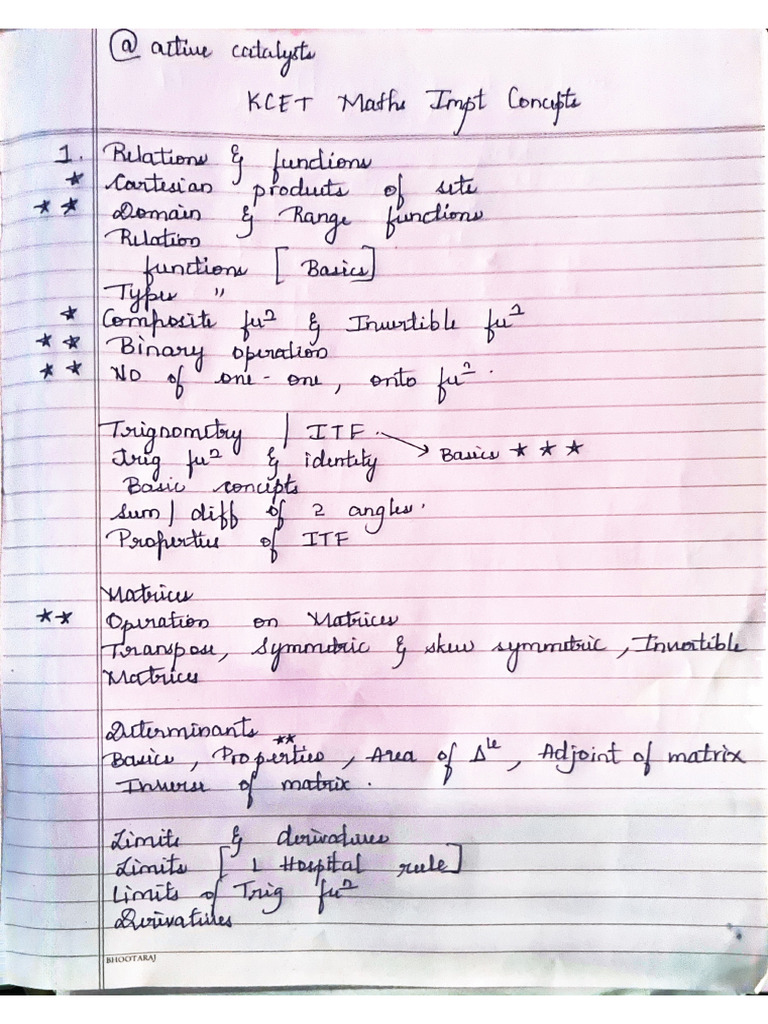 @ active catalysts
KCET Maths Impt Concepts
1. Relations & functions
★ Cartesian products of sets
★ ★ Domain & Range functions
Relation
functions [Basics]
Types "
★ Composite fuⁿ & Invertible fuⁿ
★ ★ Binary operation
★ ★ No of one-one, onto fuⁿ.
Trignometry / ITF → Basics ★ ★ ★
trig fuⁿ & identity
Basic concepts
Sum/diff of 2 angles.
Properties of ITF
Matrices
★★ Operation on Matrices
Transpose, Symmetric & skew symmetric, Invertible
Matrices
Determinants
Basics, Properties ★★, Area of Δle, Adjoint of matrix
Inverse of matrix.
Limits & derivatives
Limits [L Hospital rule]
Limits of Trig fuⁿ
Derivatives
BHOOTARAJ